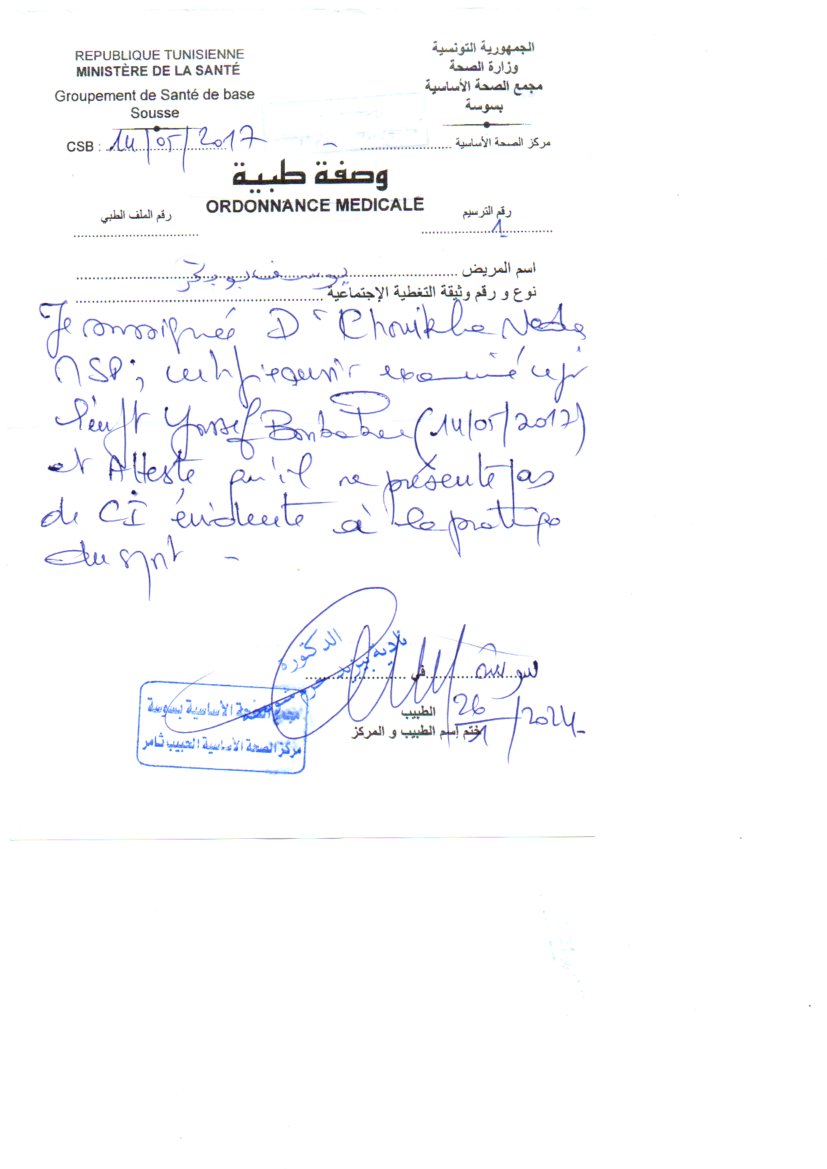 REPUBLIQUE TUNISIENNE
MINISTÈRE DE LA SANTÉ
Groupement de Santé de base
Sousse
الجمهورية التونسية
وزارة الصحة
مجمع الصحة الأساسية
بسوسة
CSB : 14/05/2017
مركز الصحة الأساسية
وصفة طبية
ORDONNANCE MEDICALE
رقم الملف الطبي
رقم الترسيم
1
اسم المريض يوسف بوبكر
نوع و رقم وثيقة التغطية الإجتماعية
Je soussignée Dr Chouikha
MSP; certifie avoir examiné ce jr
l'enft Youssef Boubaker (14/05/2017)
et Atteste qu'il ne présente pas
de CI évidente à la pratique
du sport -
الدكتورة
نادية
سوسة في
26/1/2024
الطبيب
ختم إسم الطبيب و المركز
مجمع الصحة الأساسية بسوسة
مركز الصحة الأساسية الحبيب ثامر